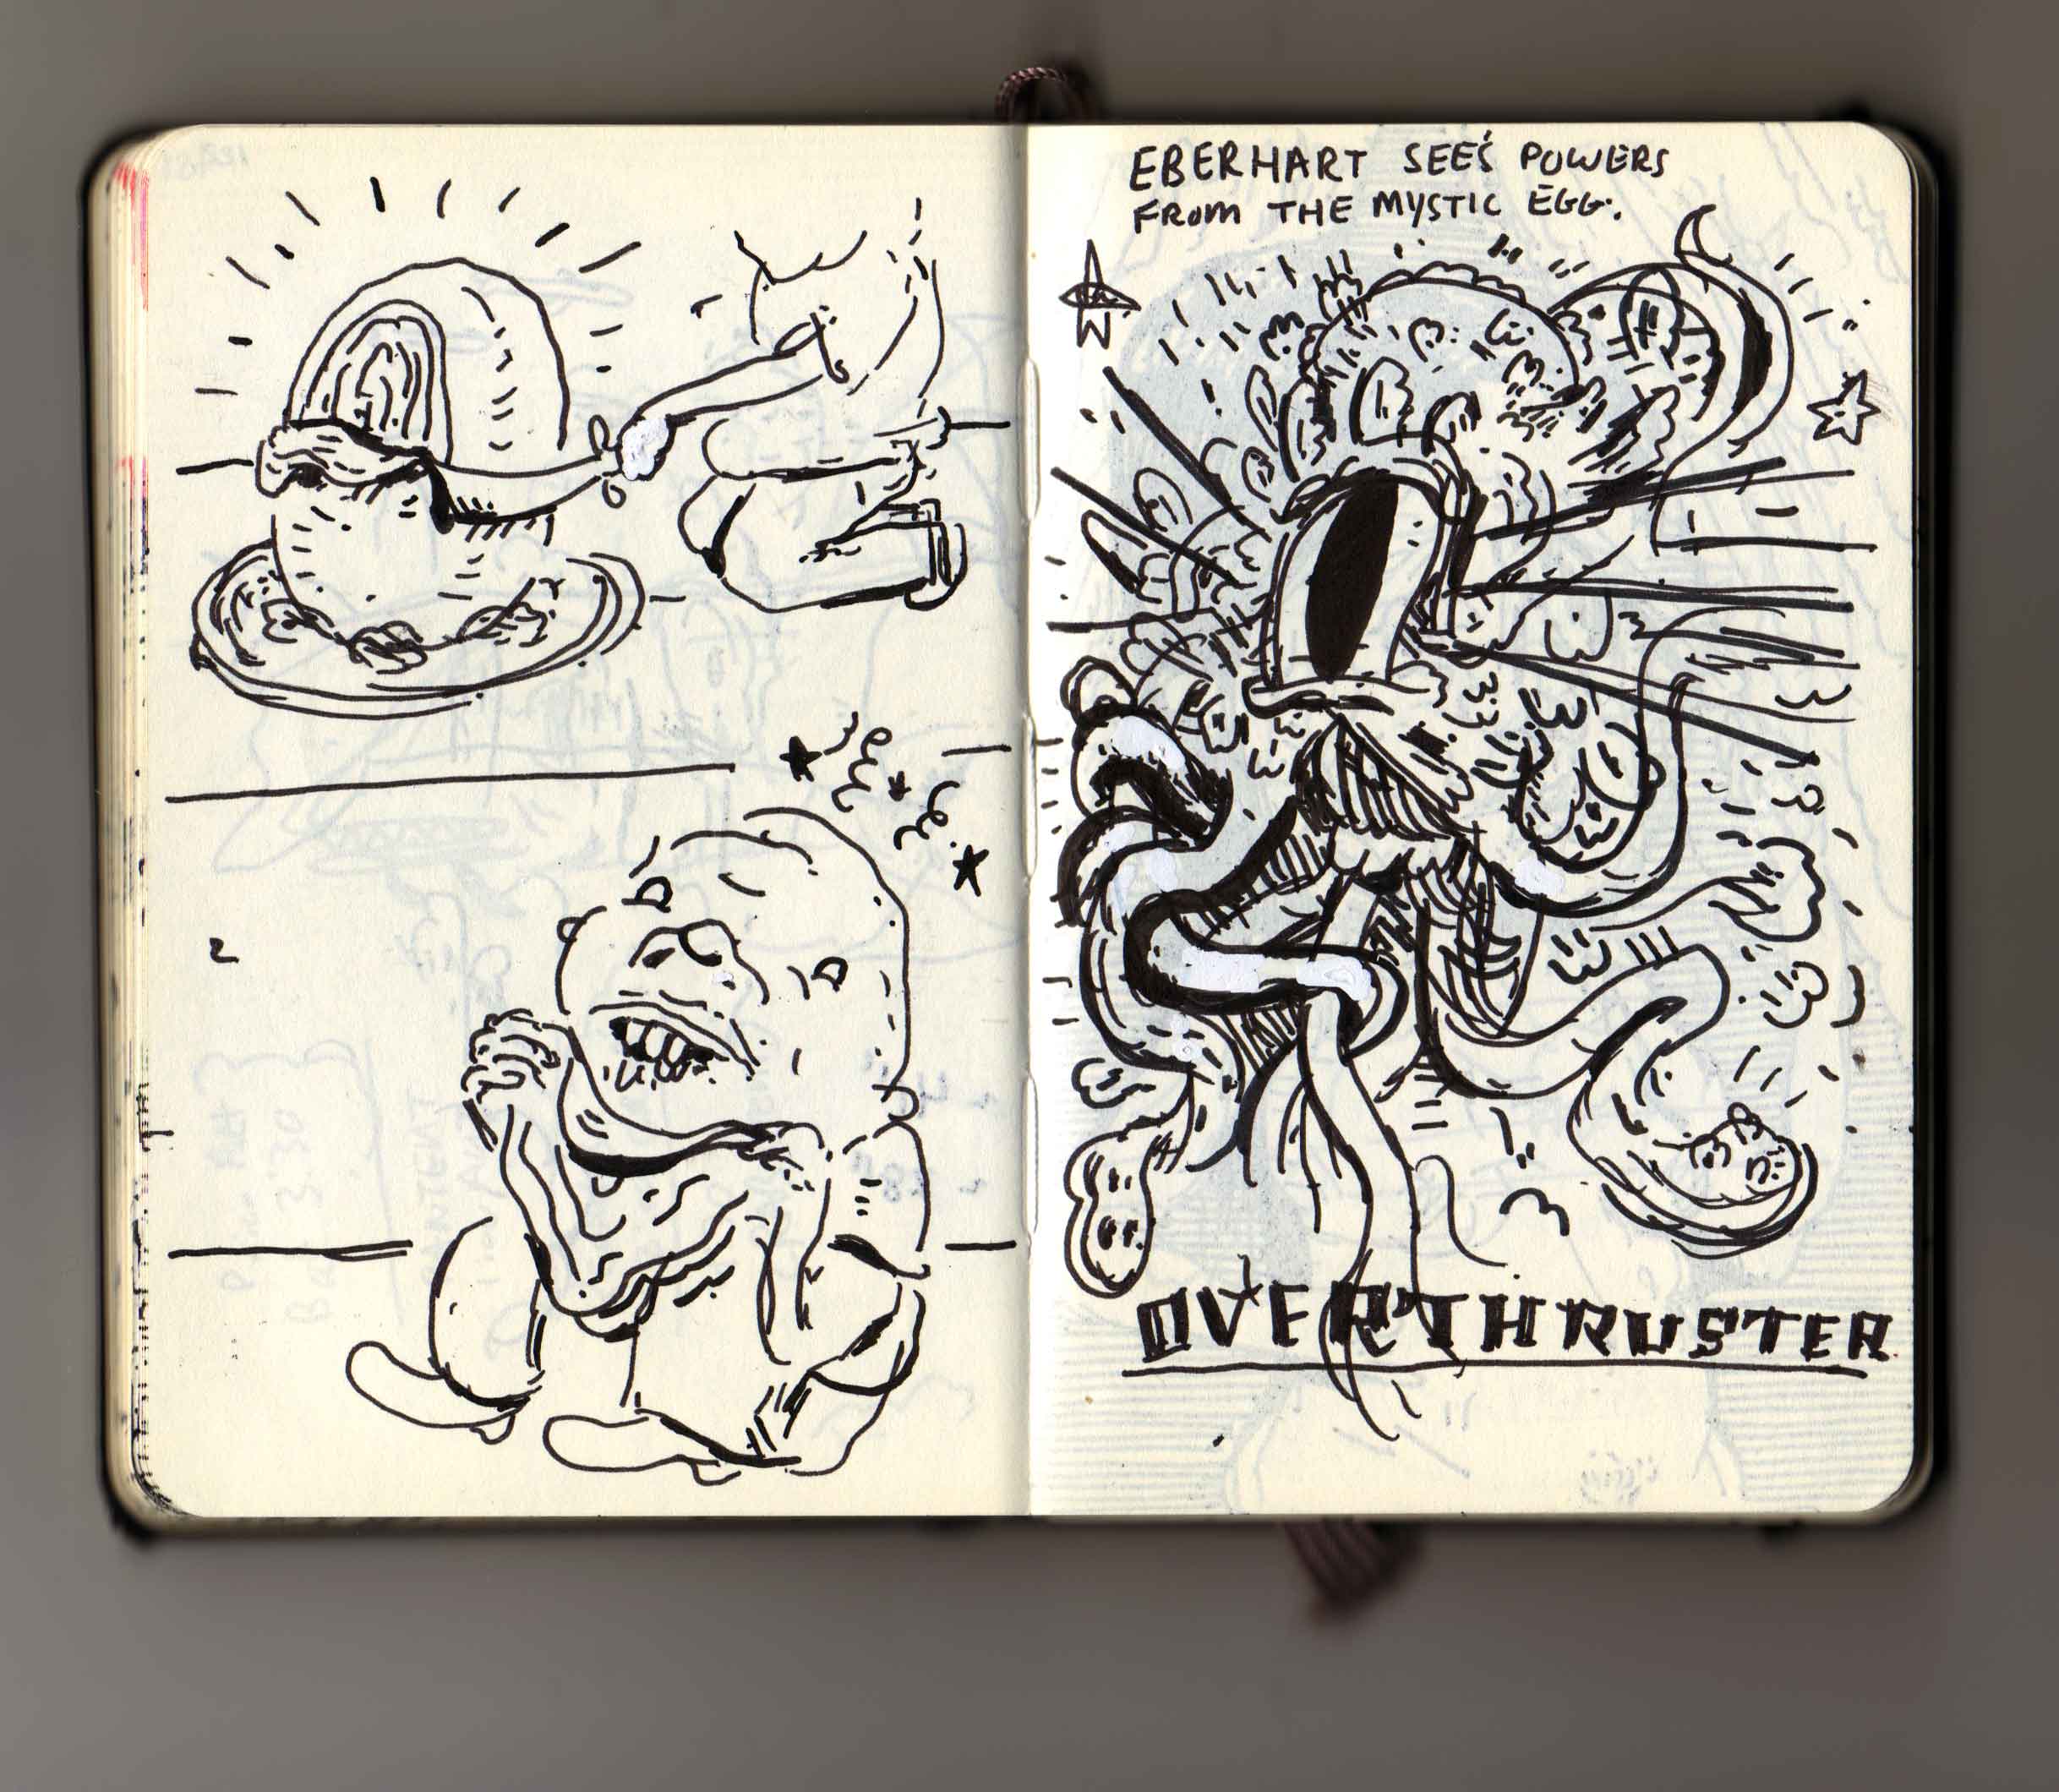 EBERHART SEE'S POWERS
FROM THE MYSTIC EGG.
OVERTHRUSTER